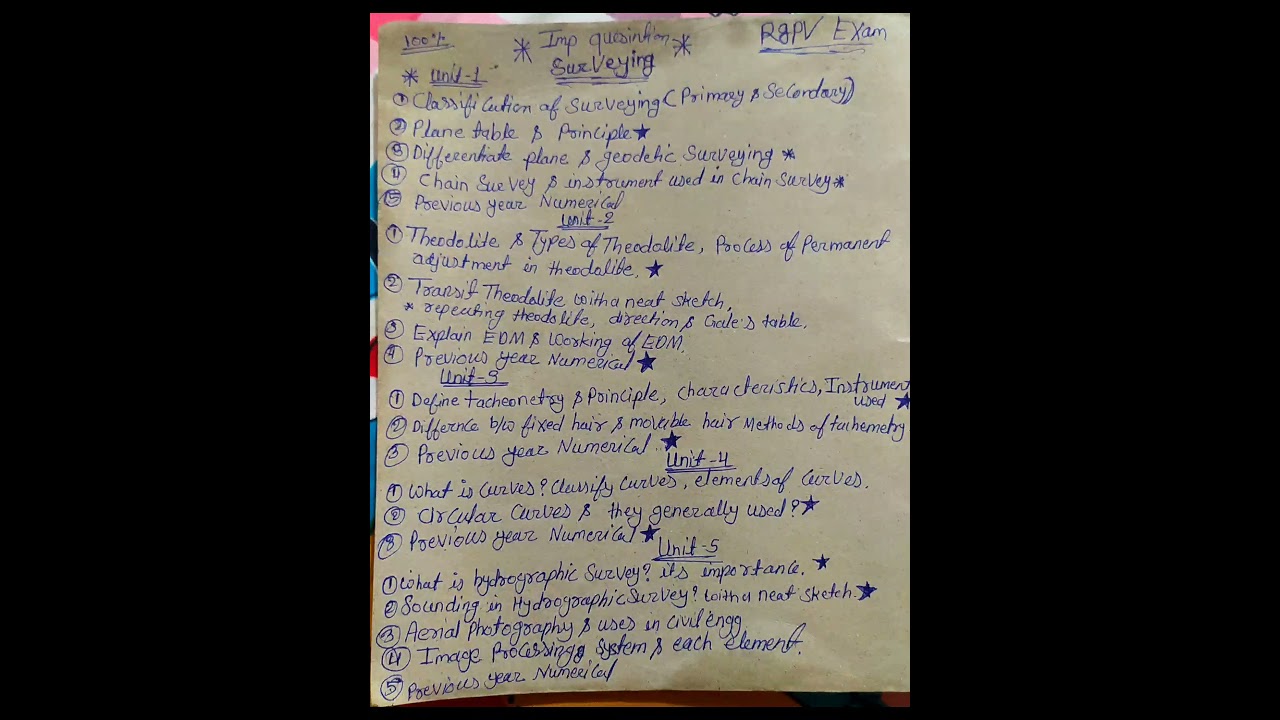 100%
* Imp quesintion *
RGPV Exam
Surveying
* Unit-1
① Classification of Surveying (Primary & Secondary)
② Plane table & Principle ★
③ Differentiate plane & geodetic Surveying *
④ Chain Survey & instrument used in Chain Survey *
⑤ Previous year Numerical
Unit-2
① Theodolite & Types of Theodolite, Process of Permanent
adjustment in theodolite. ★
② Transit Theodolite with a neat sketch,
* repeating theodolite, direction & Gale's table.
③ Explain EDM & Working of EDM.
④ Previous year Numerical ★
Unit-3
① Define tacheometry & Principle, characteristics, Instrument
used ★
② Differnce b/w fixed hair & movable hair Methods of tachemetry
③ Previous year Numerical ★
Unit-4
① What is Curves? Classify Curves, elements of Curves.
② Circular Curves & they generally used? ★
③ Previous year Numerical ★
Unit-5
① What is hydrographic Survey? its importance. ★
② Sounding in Hydrographic Survey? with a neat sketch. ★
③ Aerial Photography & uses in civil engg
④ Image Processing System & each element.
⑤ Previous year Numerical